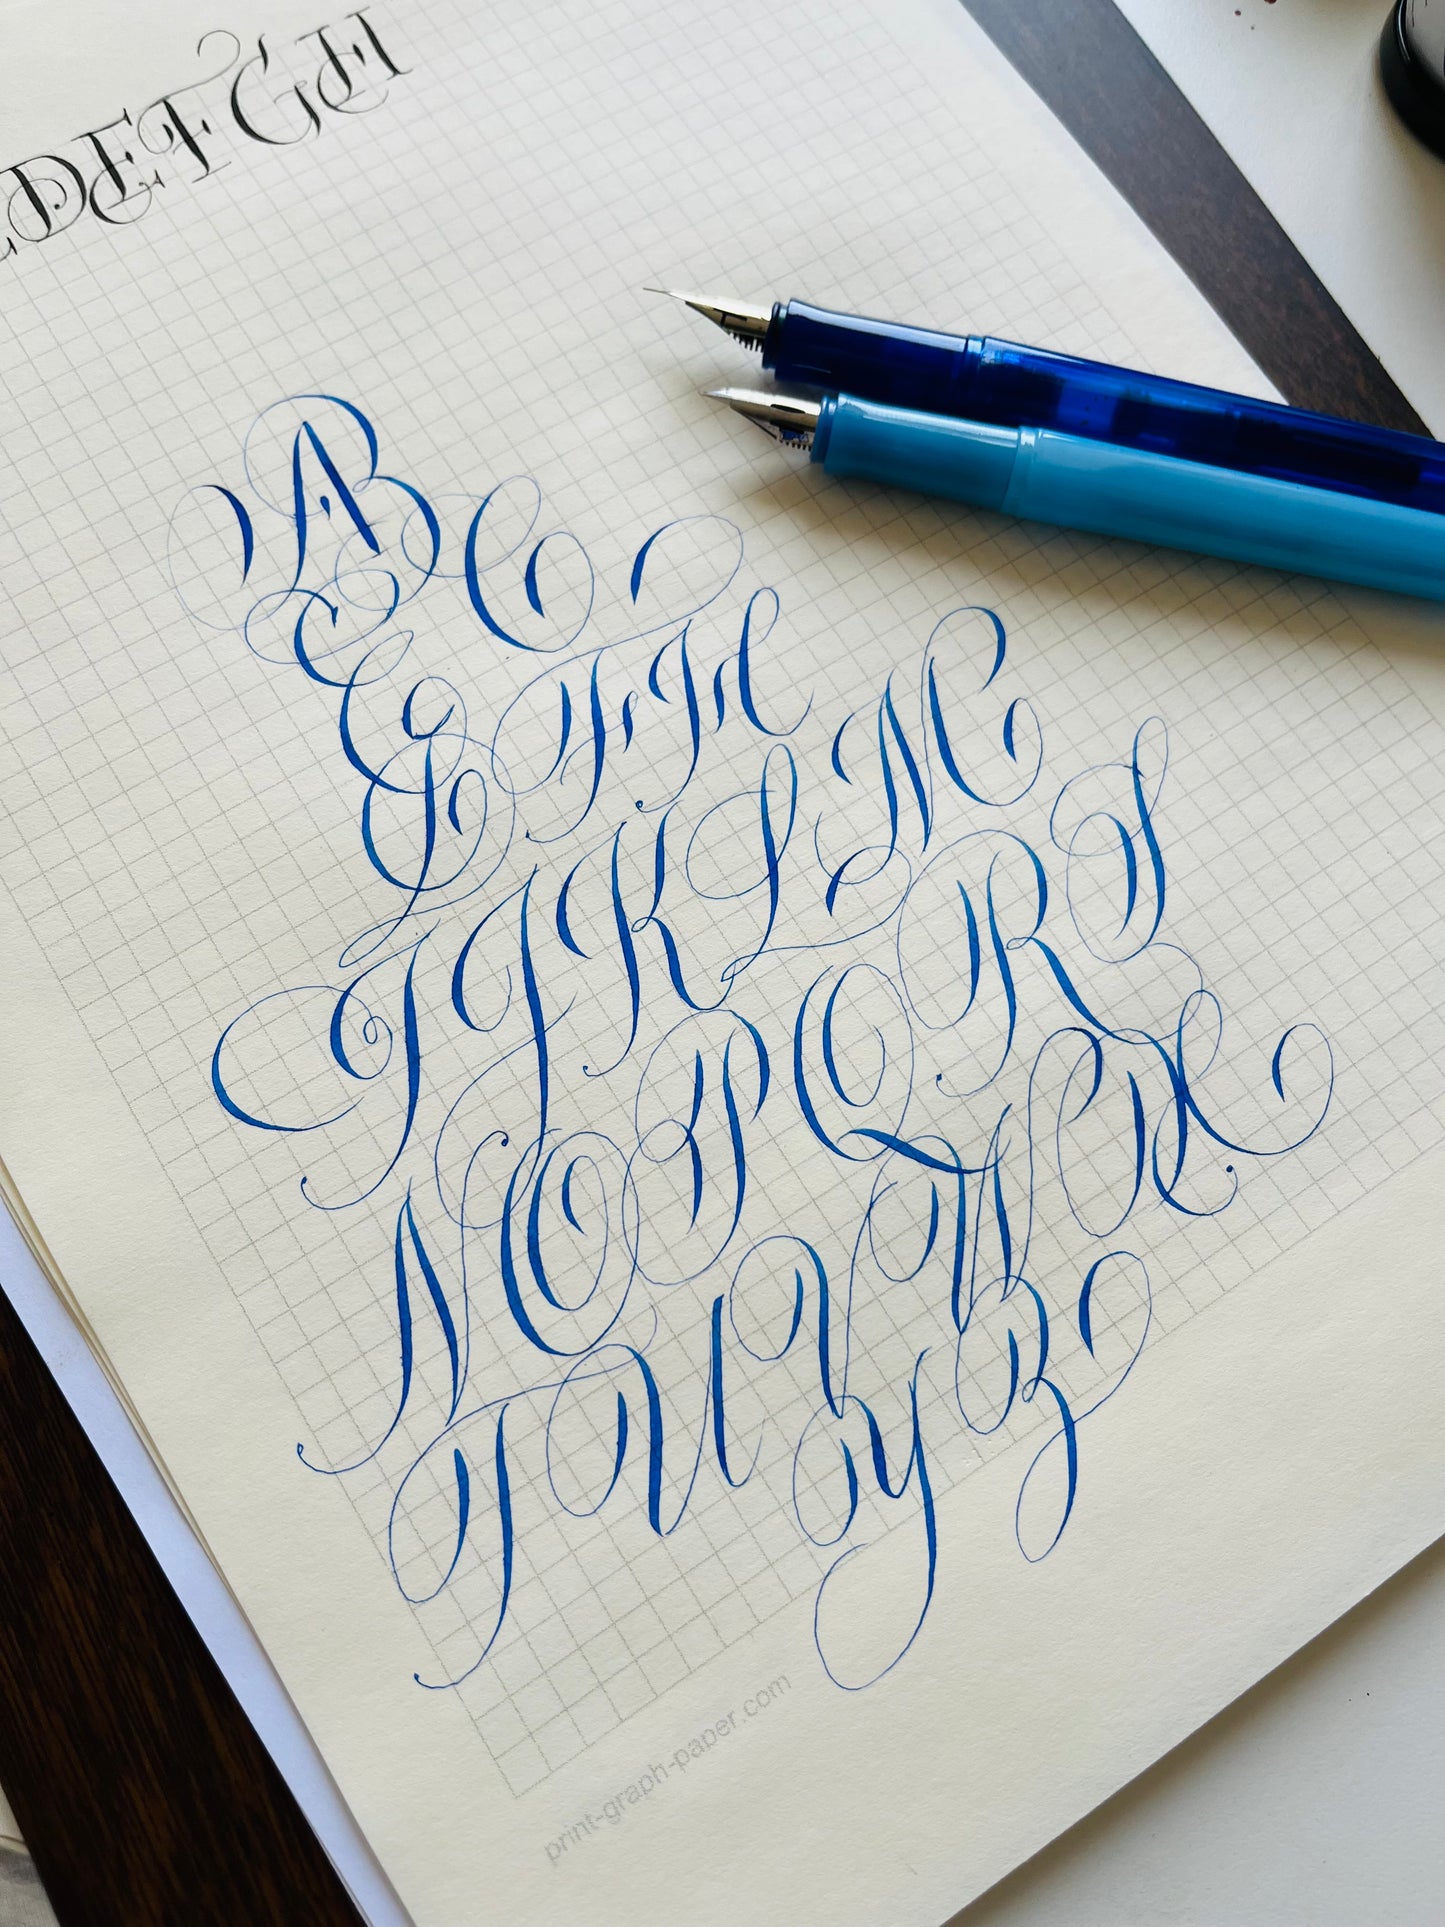 DEFGH
ABC
EFGH
IJKLM
NOPQRS
TUVWX
YZ
print-graph-paper.com